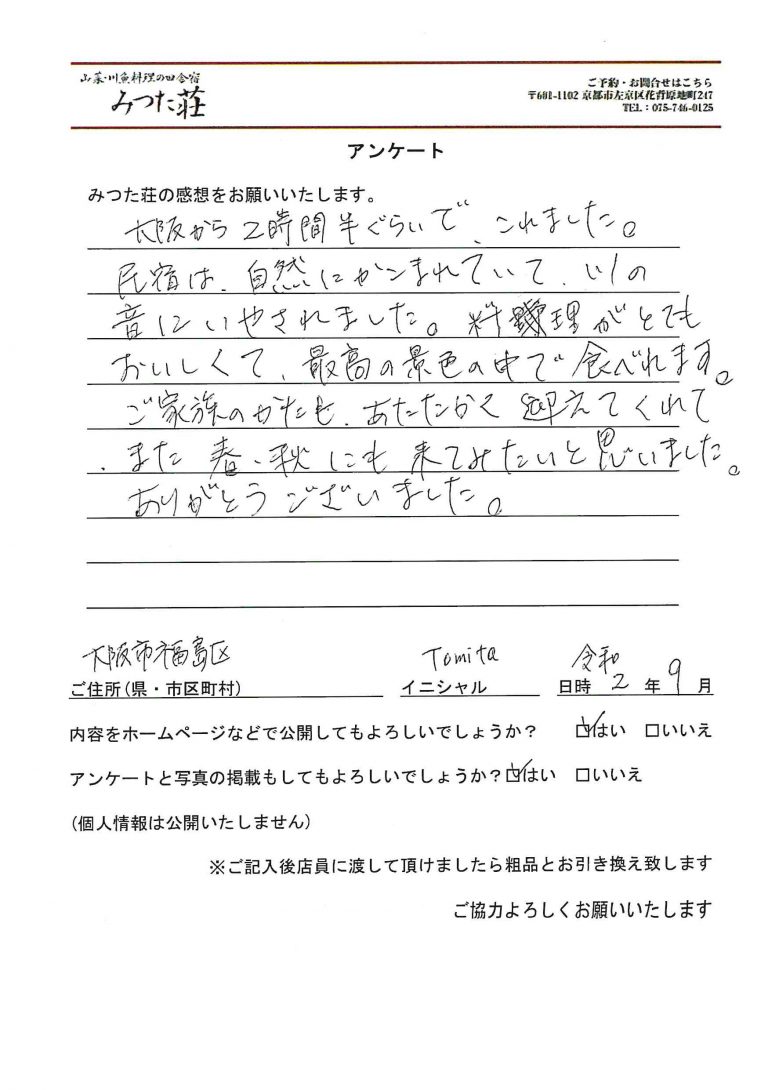 山菜・川魚料理の田舎宿
みつた荘
ご予約・お問合せはこちら
〒601-1102 京都市左京区花脊原地町247
TEL：075-746-0125
アンケート
みつた荘の感想をお願いいたします。
大阪から2時間半ぐらいで、これました。
民宿は、自然にかこまれていて、川の
音にいやされました。料理がとても
おいしくて、最高の景色の中で食べれます。
ご家族のかたも、あたたかく迎えてくれて
、また春、秋にも来てみたいと思いました。
ありがとうございました。
大阪市福島区 Tomita 令和
ご住所(県・市区町村) イニシャル 日時 2 年 9 月
内容をホームページなどで公開してもよろしいでしょうか？ ☑はい □いいえ
アンケートと写真の掲載もしてもよろしいでしょうか？☑はい □いいえ
(個人情報は公開いたしません)
※ご記入後店員に渡して頂けましたら粗品とお引き換え致します
ご協力よろしくお願いいたします